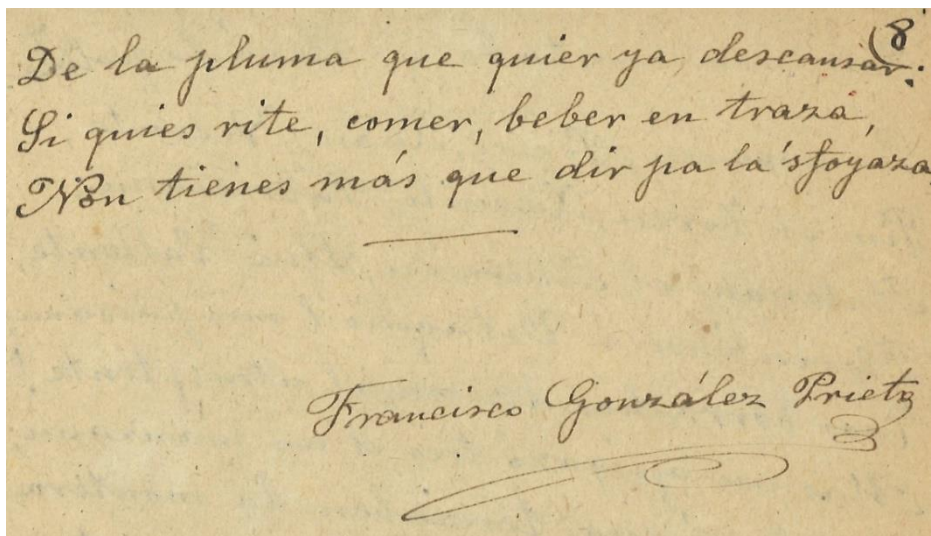 8
De la pluma que quier ya descansar:
Si quies rite, comer, beber en traza,
Non tienes más que dir pa la'sfoyaza.
Francisco González Prieto